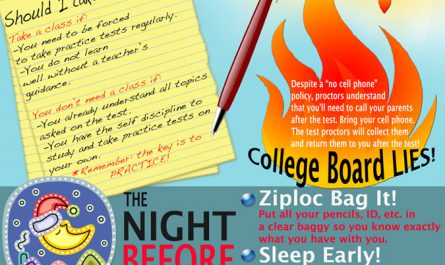 Should I ta
Take a class if:
-You need to be forced
to take practice tests regularly.
-You do not learn
well without a teacher's
guidance.
You don't need a class if:
-You already understand all topics
asked on the test.
-You have the self discipline to
study and take practice tests on
your own.
*Remember: the key is to
PRACTICE!
Despite a "no cell phone"
policy, proctors understand
that you'll need to call your parents
after the test. Bring your cell phone.
The test proctors will collect them
and return them to you after the test!
College Board LIES!
THE
NIGHT
BEFORE
Ziploc Bag It!
Put all your pencils, ID, etc. in
a clear baggy so you know exactly
what you have with you.
Sleep Early!